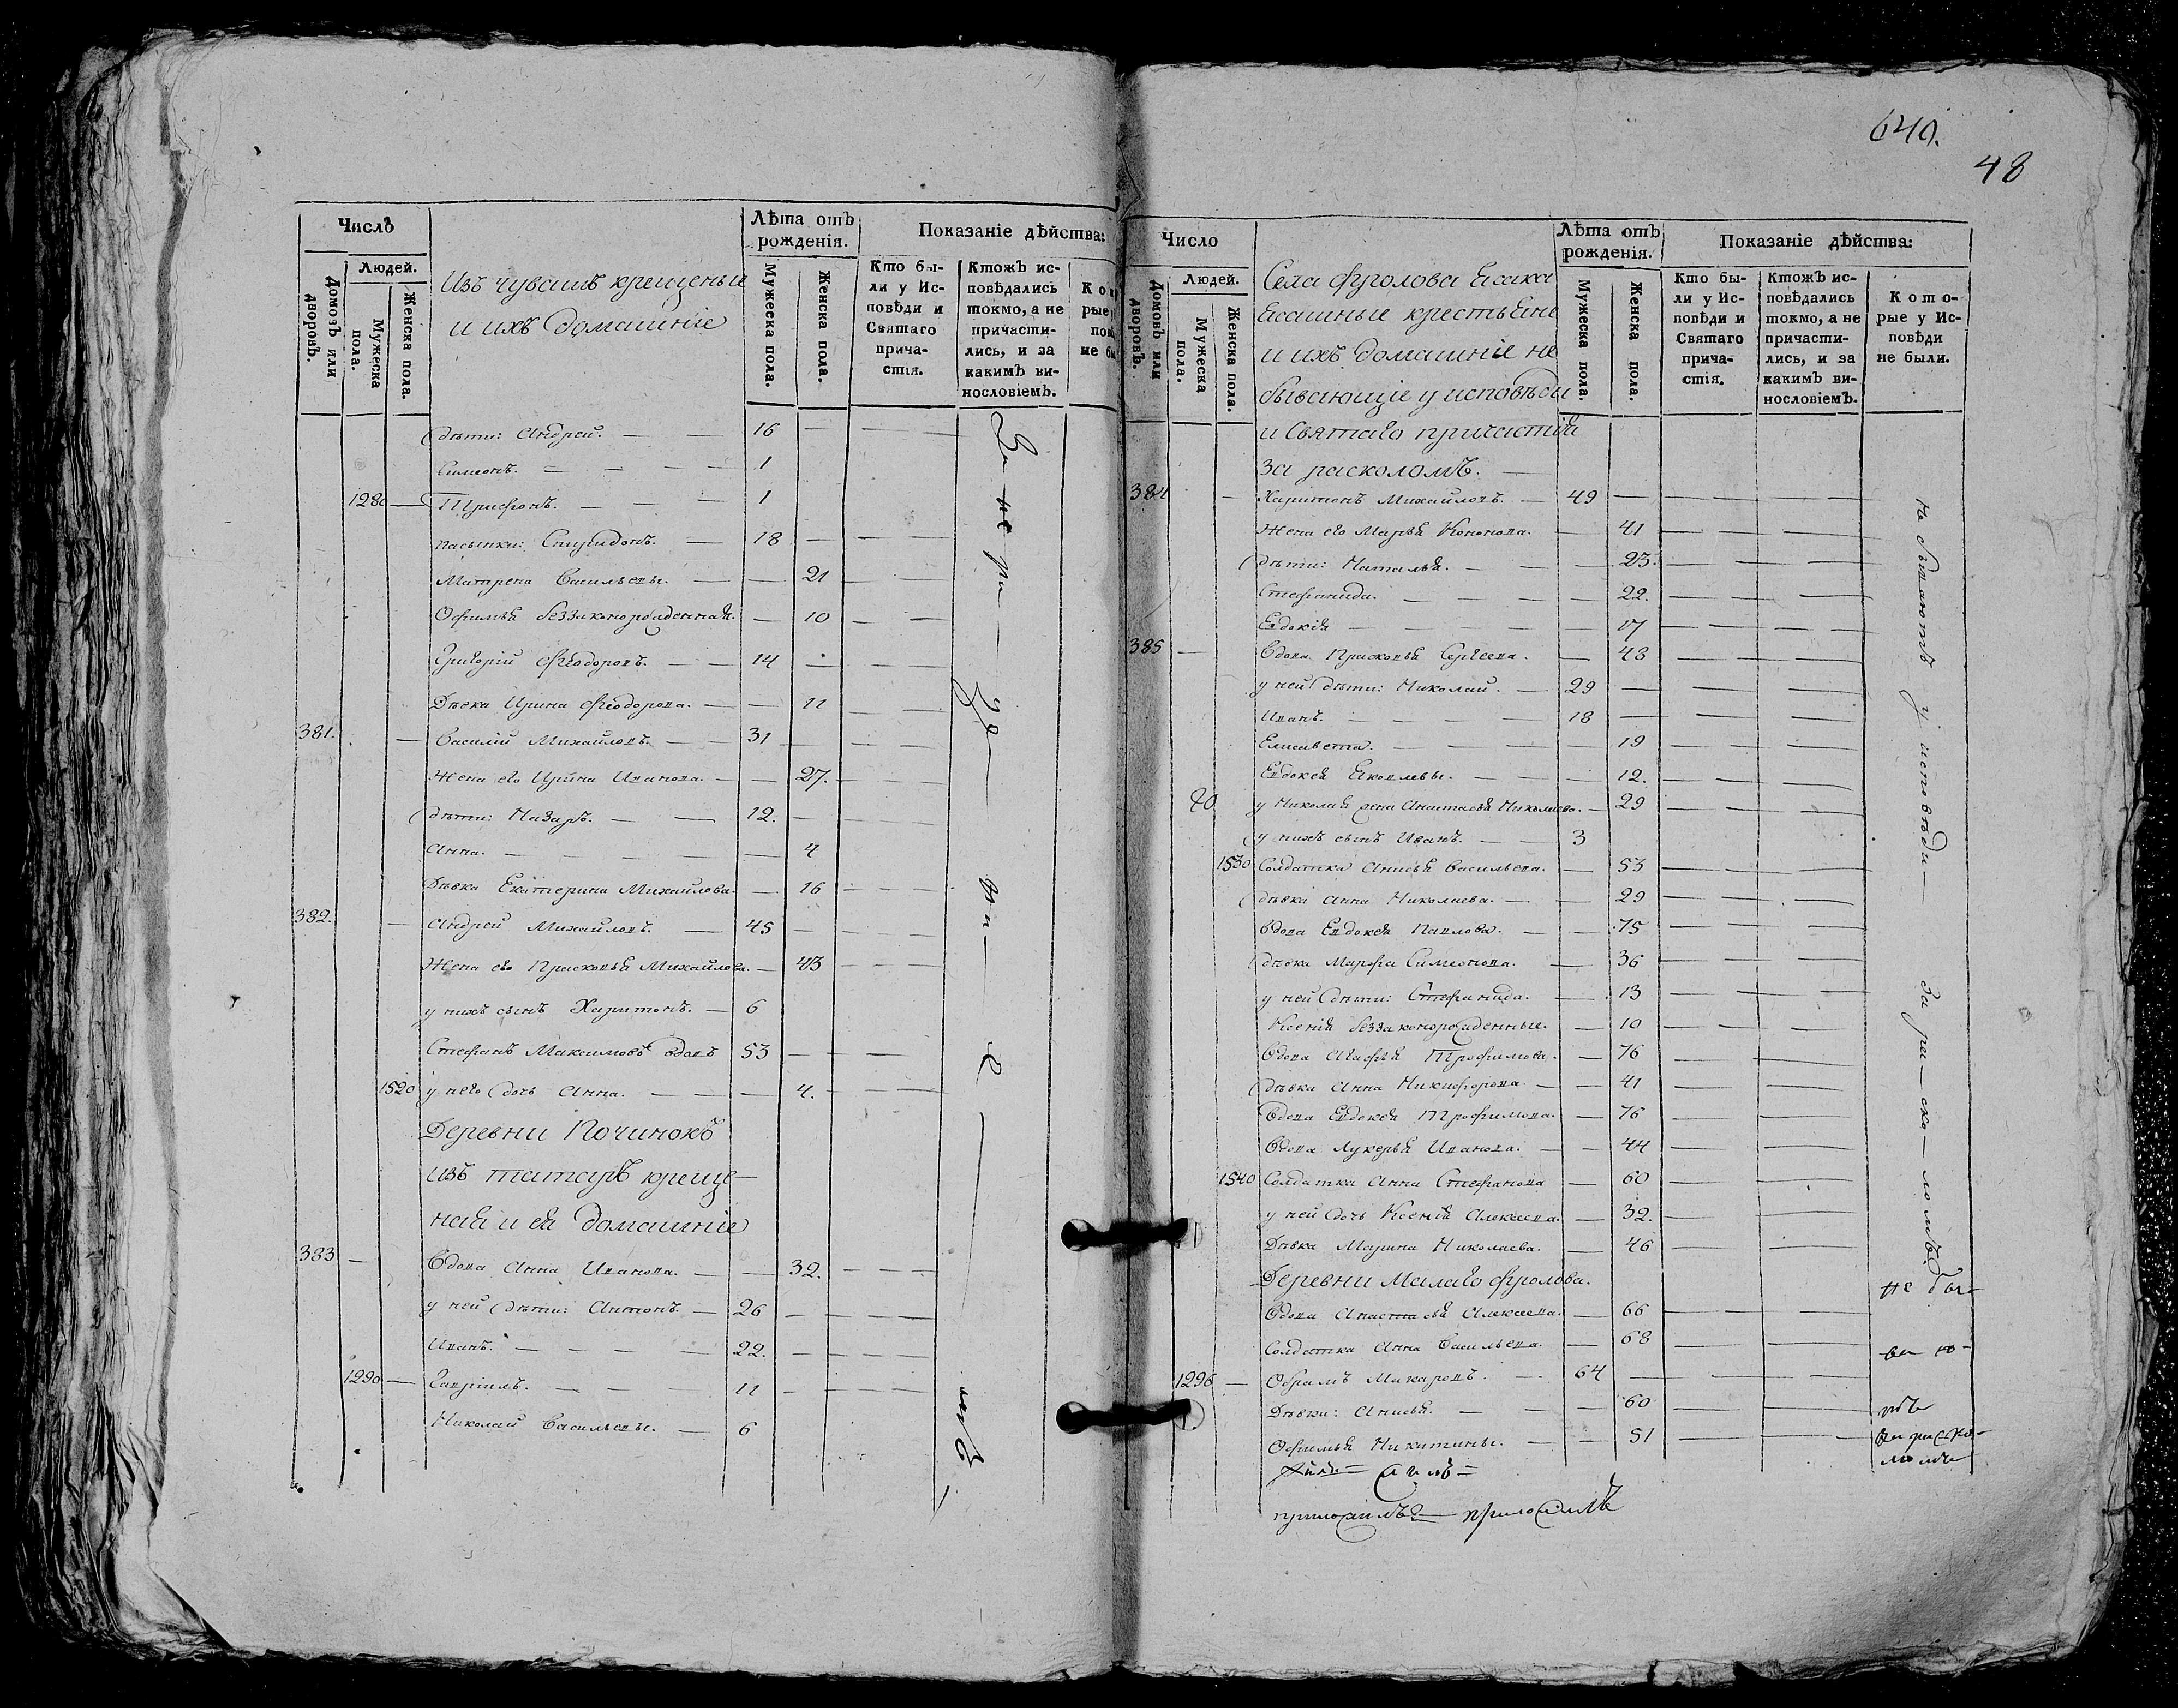 Числѣ
Людей.
Домовъ или дворовъ.
Мужеска пола.
Женска пола.
Изъ чувашъ крещеные
и ихъ домашніе
Лѣта отъ рожденія.
Мужеска пола.
Женска пола.
Показаніе дѣйства:
Кто бы-
ли у Ис-
повѣди и
Святаго
прича-
стія.
Ктожъ ис-
повѣдались
токмо, а не
причасти-
лись, и за
какимъ ви-
нословіемъ.
дѣти: Андрей. 16
Симеонъ. 1
1280 Трифонъ. 1
пасынки: Спиридонъ. 18
Матрена Васильевы. 21
Офимья беззаконорожденная. 10
Григорій Феодоровъ. 14
Дѣвка Ирина Феодорова. 11
381. Василій Михайловъ. 31
Жена его Ирина Иванова. 27.
дѣти: Назаръ. 12.
Анна. 4
Дѣвка Екатерина Михайлова. 16
382. Андрей Михайловъ. 45
Жена его Прасковья Михайлова. 43
у нихъ сынъ Харитонъ. 6
Стефанъ Максимовъ вдовъ 53
1520 у него дочь Анна. 4.
Деревни Починокъ
изъ татаръ креще-
ная и ея домашніе
383 Вдова Анна Иванова. 32.
у ней дѣти: Антонъ. 26
Иванъ. 22.
1290 Гавріилъ. 11
Николай Васильевы. 6
640.
48
Число
Людей.
Домовъ или дворовъ.
Мужеска пола.
Женска пола.
Села Фролова Ясака
Ясашные крестьяне
и ихъ домашніе не
бывающіе у исповѣди
и Святаго причастія
за расколомъ.
Лѣта отъ рожденія.
Мужеска пола.
Женска пола.
Показаніе дѣйства:
Кто бы-
ли у Ис-
повѣди и
Святаго
прича-
стія.
Ктожъ ис-
повѣдались
токмо, а не
причасти-
лись, и за
какимъ ви-
нословіемъ.
Кото-
рые у Ис-
повѣди
не были.
384 Харитонъ Михайловъ. 49
Жена его Марья Кононова. 41
дѣти: Наталья. 23.
Стефанида. 22.
Евдокія 17
385 Вдова Прасковья Сергеева. 48
у ней дѣти: Николай. 29
Иванъ. 18
Елисавета. 19
Евдокея Яковлевы. 12.
у Николая жена Анастасья Николаева. 29
у нихъ сынъ Иванъ. 3
1530 Солдатка Анисья Васильева. 53
дѣвка Анна Николаева. 29
Вдова Евдокея Павлова. 75
дѣвка Марфа Симеонова. 36
у ней дѣти: Стефанида. 13
Ксенія беззаконорожденные. 10
Вдова Агафья Трофимова. 76
дѣвка Анна Никифорова. 41
Вдова Евдокея Трофимова. 76
Вдова Лукерья Иванова. 44
1540 Солдатка Анна Стефанова 60
у ней дочь Ксенія Алексеева. 32.
Дѣвка Марина Николаева. 46
Деревни Малаго Фролова.
Вдова Анастасья Алексеева. 66
Солдатка Анна Васильева. 68
1296 Обрамъ Макаровъ. 64
Дѣвки: Анисья. 60
Офимья Никитины. 51
Не бываютъ у исповѣди за раско-ломъ
не бы-
ва ю-
тъ
За раско-
ломъ